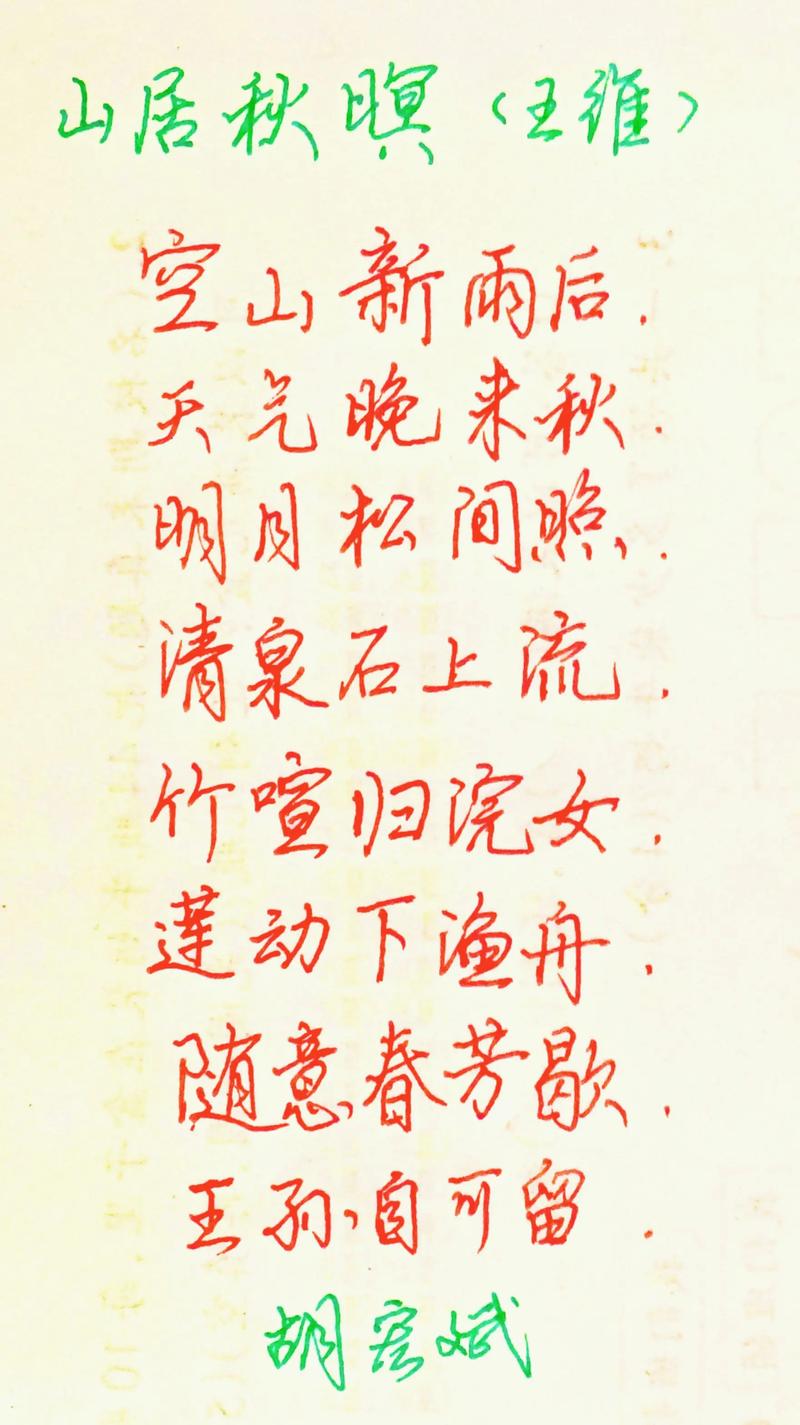 山居秋暝（王维）
空山新雨后.
天气晚来秋.
明月松间照.
清泉石上流.
竹喧归浣女.
莲动下渔舟.
随意春芳歇.
王孙自可留.
胡宏斌